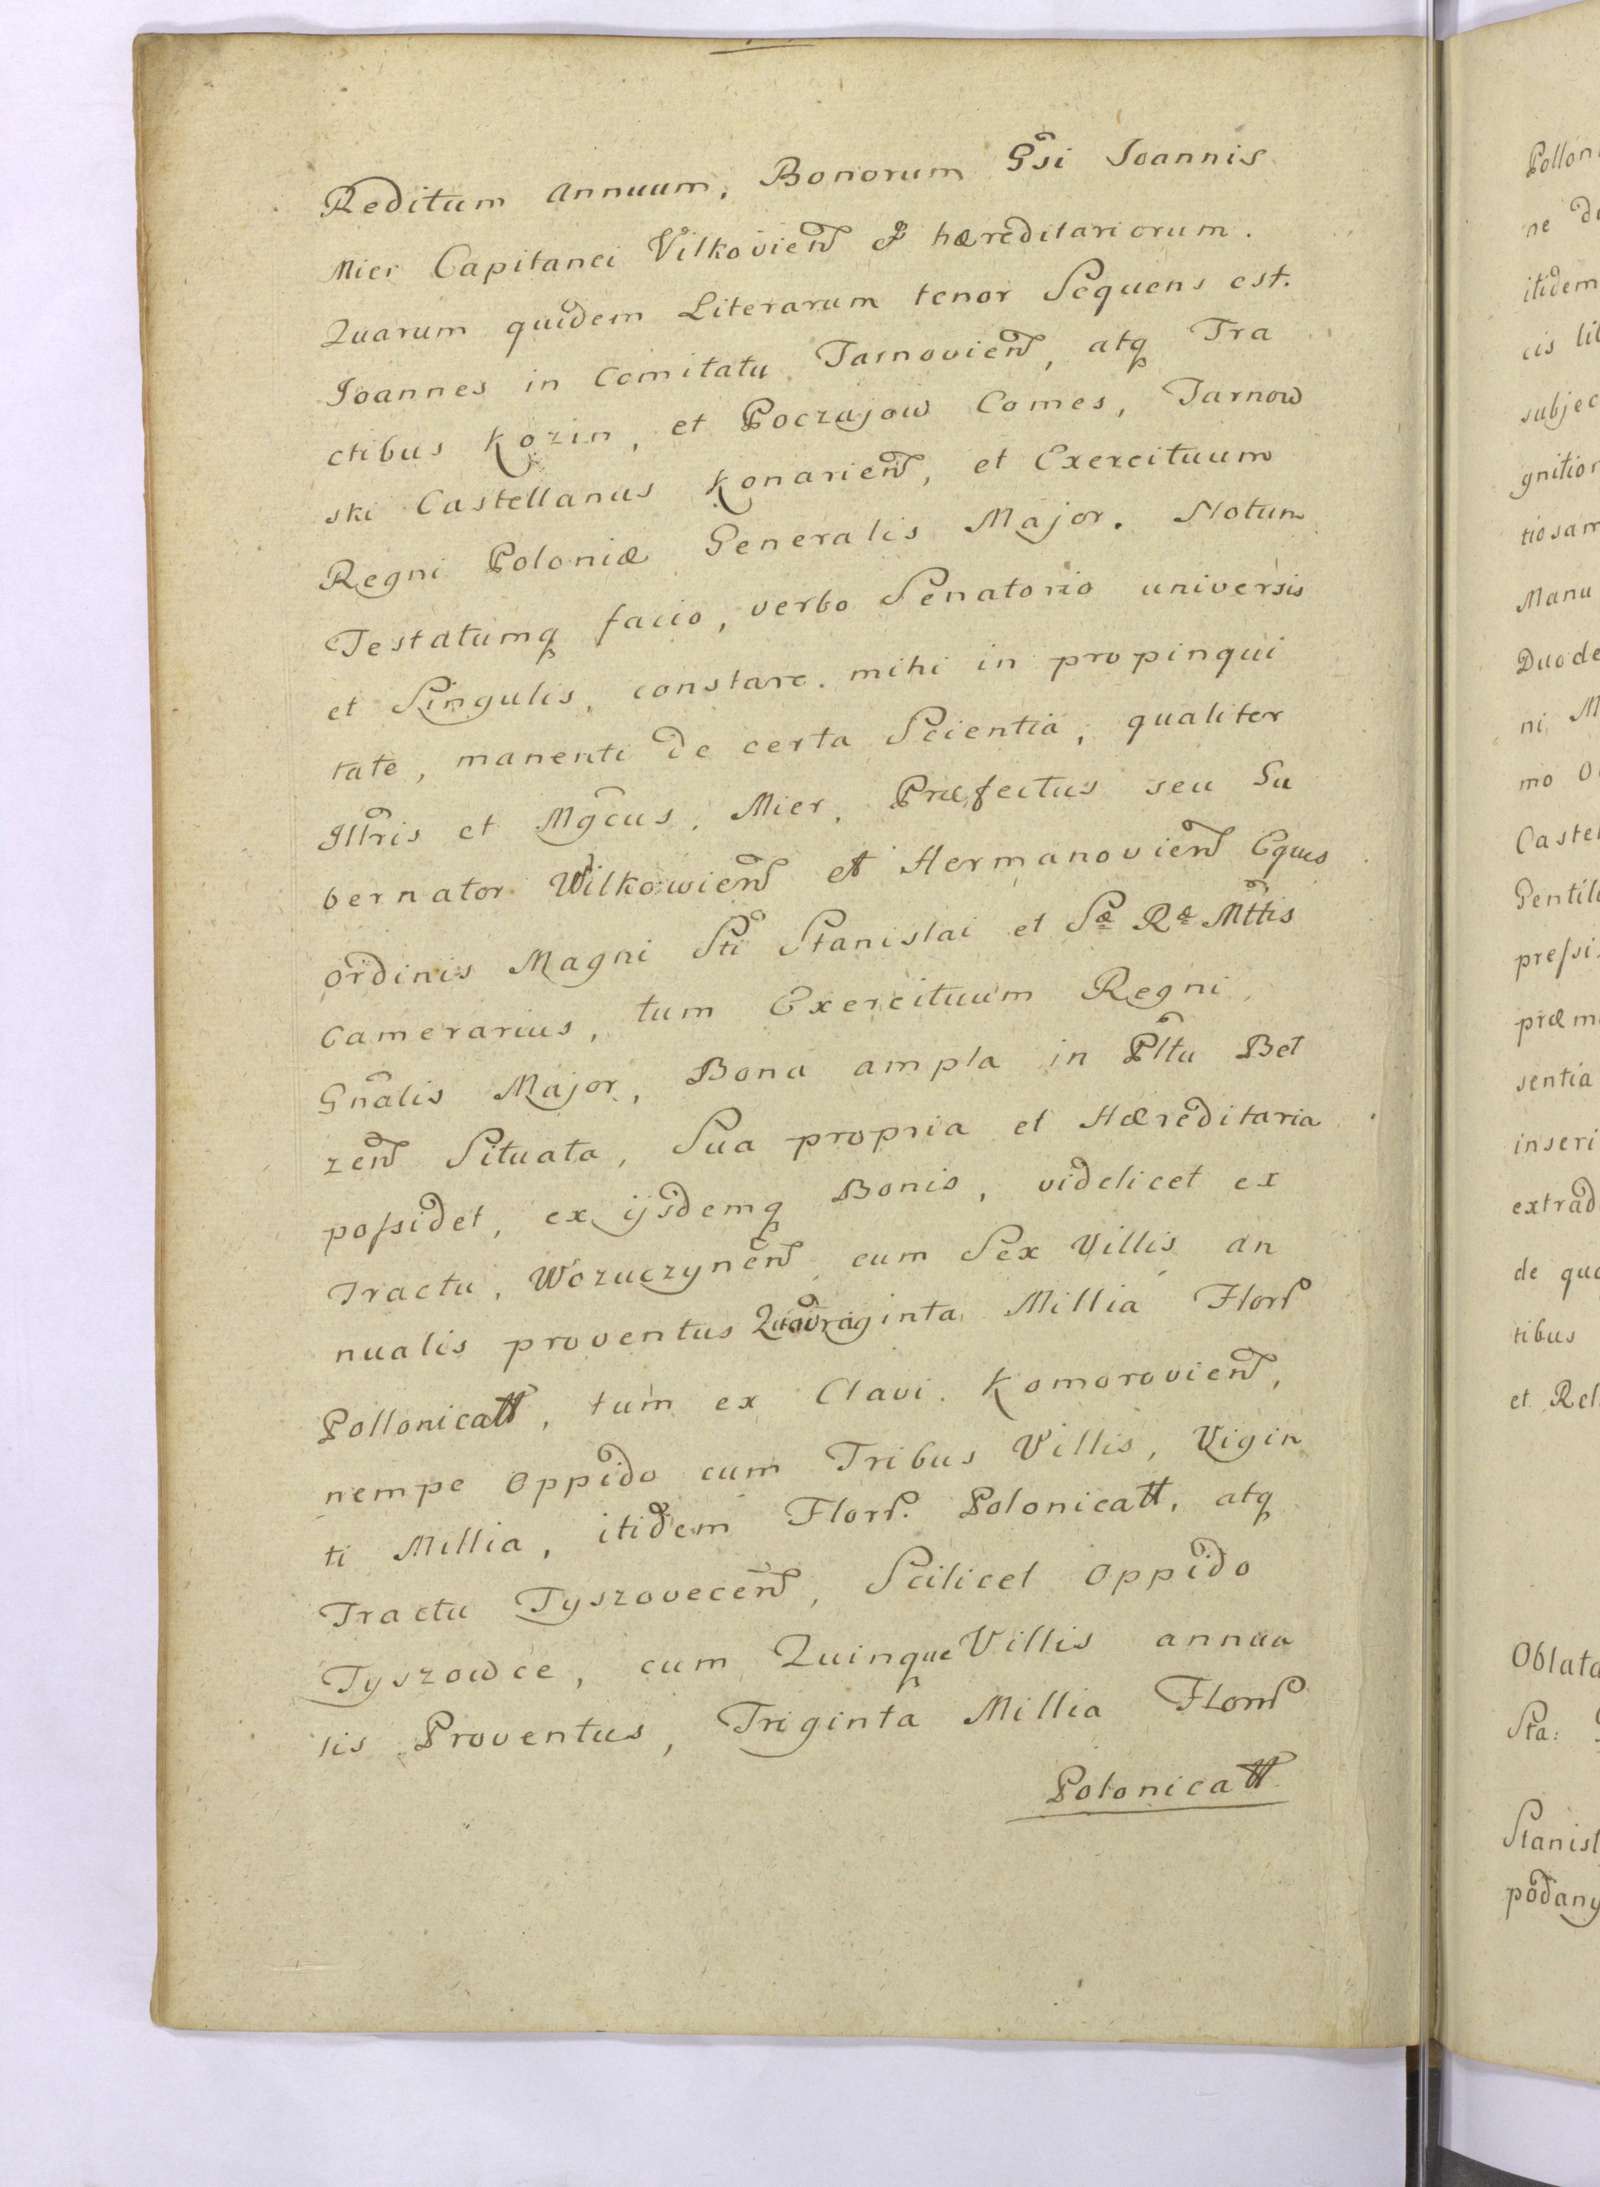 Reditum annuum, Bonorum Gsi Joannis
Mier Capitanei Vilkovien et hæreditariorum.
Quarum quidem Literarum tenor Sequens est.
Joannes in Comitatu Tarnovien, atq Tra
ctibus Kozin, et Poczajow Comes, Tarnow
ski Castellanus Konarien, et Exercituum
Regni Poloniæ Generalis Major. Notum
Testatumq facio, verbo Senatorio universis
et Singulis, constare mihi in propinqui
tate, manenti de certa Scientia, qualiter
Illris et Mgcus, Mier, Præfectus seu Gu
bernator Wilkowien et Hermanovien Eques
ordinis Magni Sti Stanislai et Sæ Ræ Mttis
Camerarius, tum Exercituum Regni
Gnalis Major, Bona ampla in Pltu Bel
zen Situata, Sua propria et Hæreditaria
possidet, ex ijsdemq Bonis, videlicet ex
Tractu, Wozuczynen, cum Sex Villis an
nualis proventus Quadraginta Millia Flor
Pollonicall, tum ex Clavi Komorovien,
nempe Oppido cum Tribus Villis, Vigin
ti Millia, itidem Flor. Polonicall, atq
Tractu Tyszovecen, Scilicet Oppido
Tyszowce, cum Quinque Villis annua
lis Proventus, Triginta Millia Flor
Polonicall
Pollon
ne
itidem
subjec
gnition
tiosam
Manu
Duode
ni M
mo
Castel
Gentil
præm
sentia
inseri
extrad
de
tibus
et Rel
Oblata
Sta:
Stanisl
podany